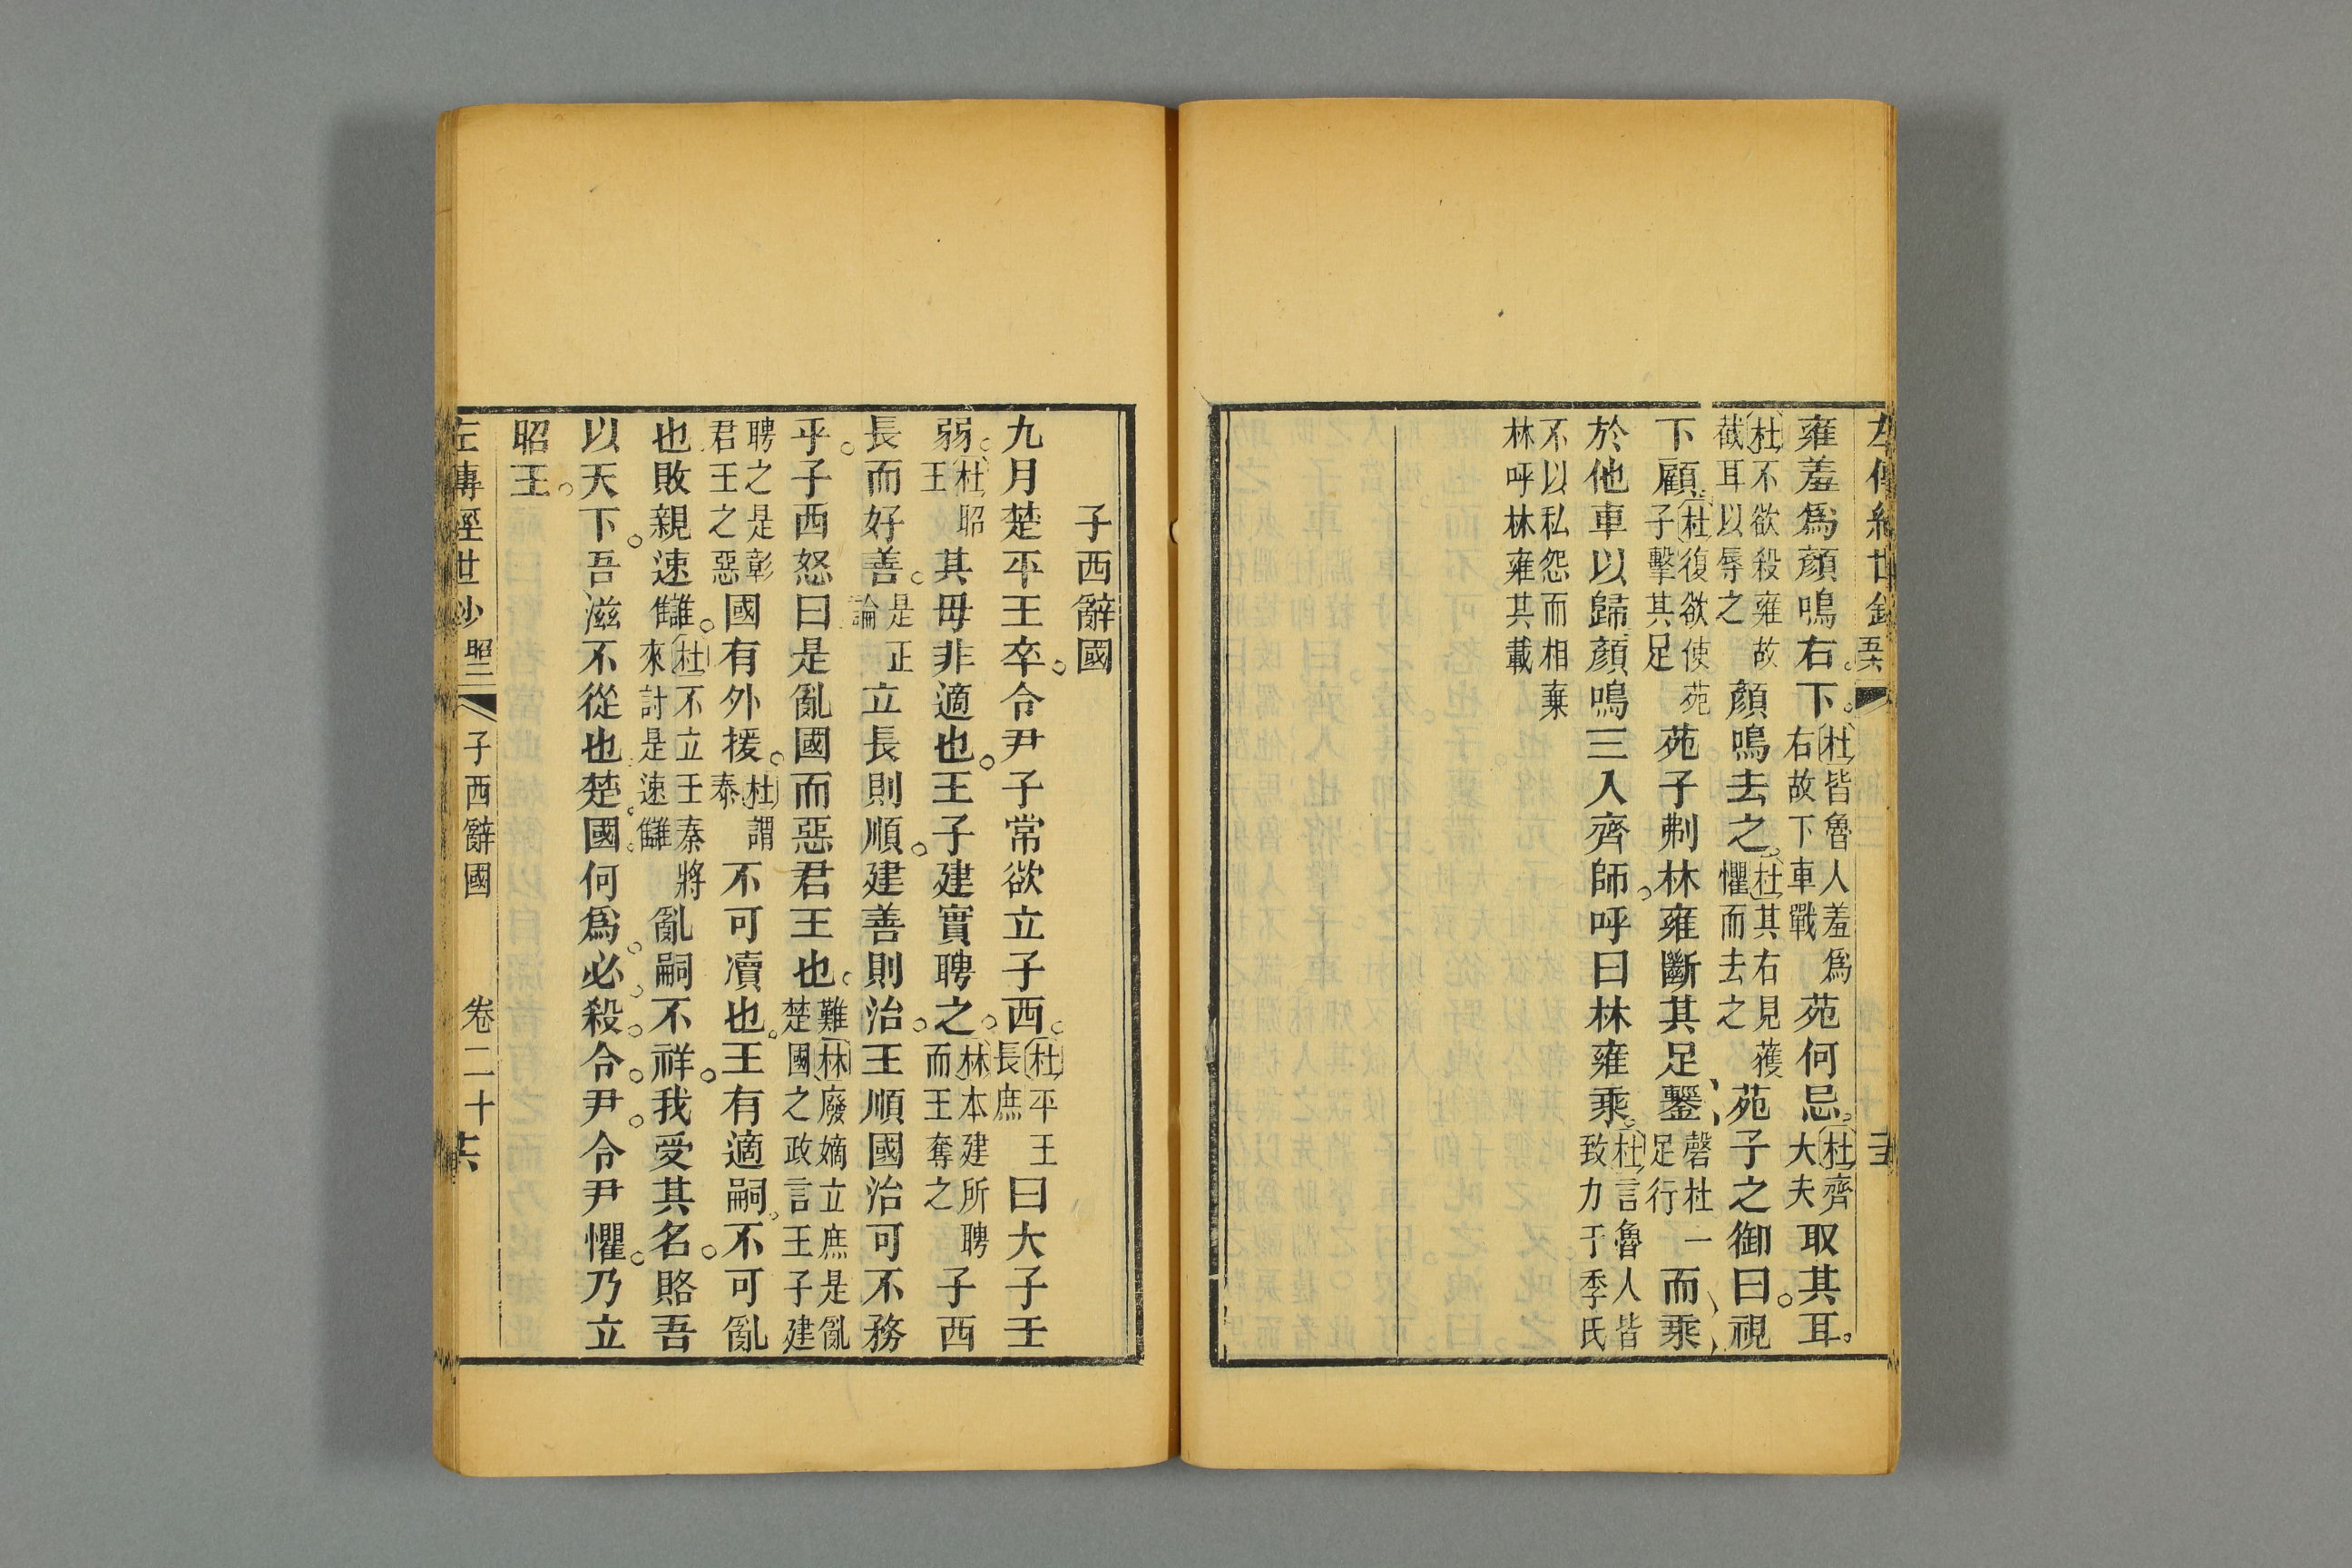 雍羞爲顏鳴右下杜皆魯人羞爲右故下車戰苑何忌杜齊大夫取其耳
杜不欲殺雍故截耳以辱之顏鳴去之杜其右見獲懼而去之苑子之御曰視
下顧杜復欲使苑子擊其足苑子刜林雍斷其足鑋磬杜一足行而乘
於他車以歸顏鳴三入齊師呼曰林雍乘杜言魯人皆致力于季氏
不以私怨而相棄林呼林雍其載
子西辭國
九月楚平王卒令尹子常欲立子西杜平王長庶曰大子壬
弱杜昭王其母非適也王子建實聘之林本建所聘而王奪之子西
長而好善是正論立長則順建善則治王順國治可不務
乎子西怒曰是亂國而惡君王也難楚林廢嫡立庶是亂國之政言王子建
聘之是彰君王之惡國有外援杜謂秦不可凟也王有適嗣不可亂
也敗親速讎杜不立壬秦將來討是速讎亂嗣不祥我受其名賂吾
以天下吾滋不從也楚國何爲必殺令尹令尹懼乃立
昭王
左傳經世鈔 昭三 子西辭國 卷二十